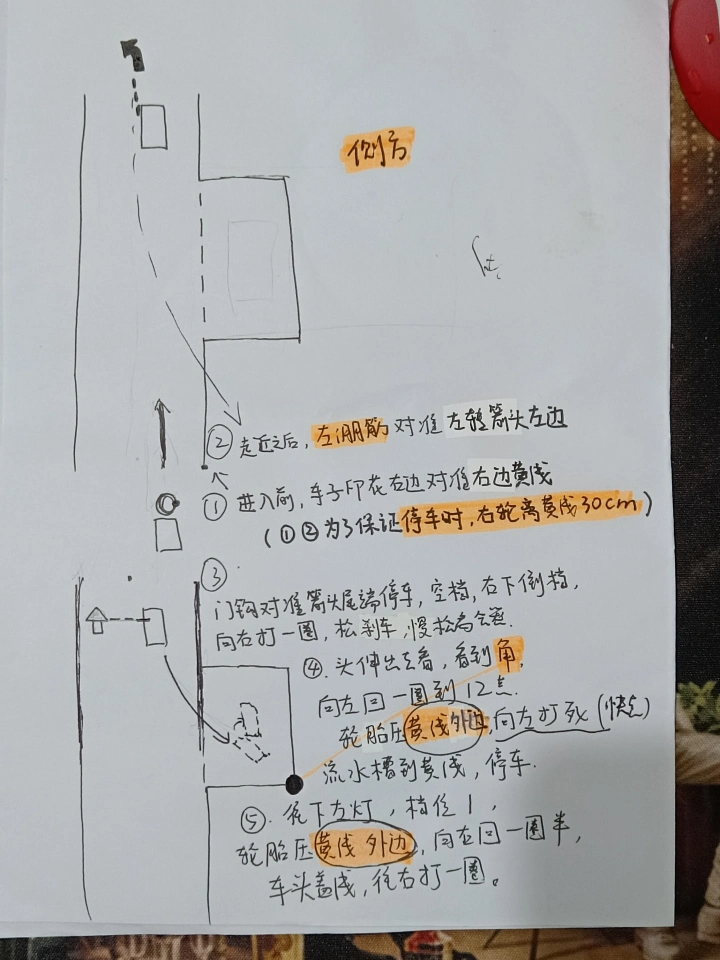 侧方
② 走近之后，左雨刷筋对准左转箭头左边
① 进入前，车子印花右边对准右边黄线
（①②为了保证停车时，右轮离黄线30cm）
③
门钩对准箭头尾端停车，空档，右下倒档，
向右打一圈，松刹车，慢松离合器．
④．头伸出去看，看到角，
向左回一圈到12点．
轮胎压黄线外边，向左打死（快点）
流水槽到黄线，停车．
⑤．往下方灯，档位1，
轮胎压黄线外边，向右回一圈半，
车头盖线，往右打一圈。